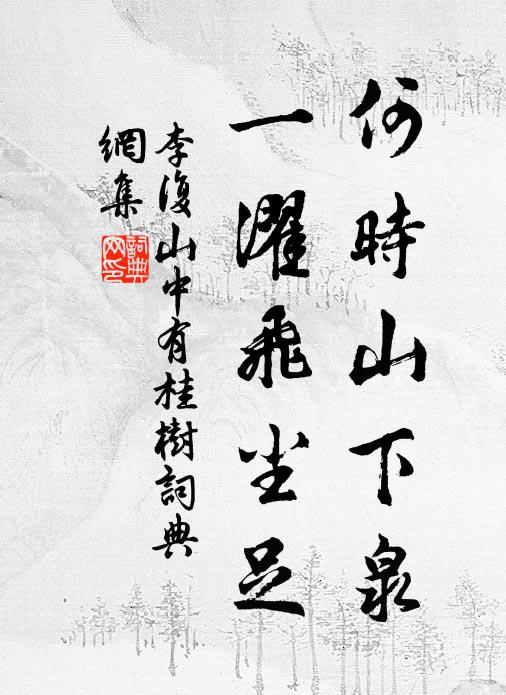 何時山下泉
一濯飛尘足
李復山中有桂樹詞典
網集
詞典
网印